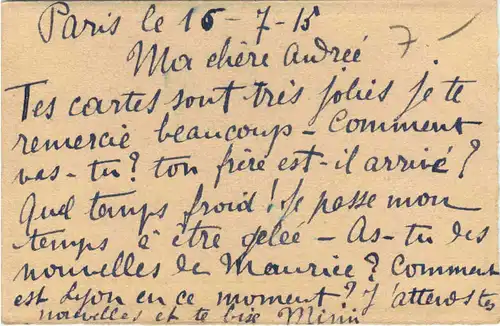 Paris le 16-7-15
Ma chère Andrée 7
Tes cartes sont très jolies je te
remercie beaucoup - Comment
vas-tu? ton frère est-il arrivé?
Quel temps froid! Je passe mon
temps à être gelée - As-tu des
nouvelles de Maurice? Comment
est Lyon en ce moment? J'attends tes
nouvelles et te bise Mimi